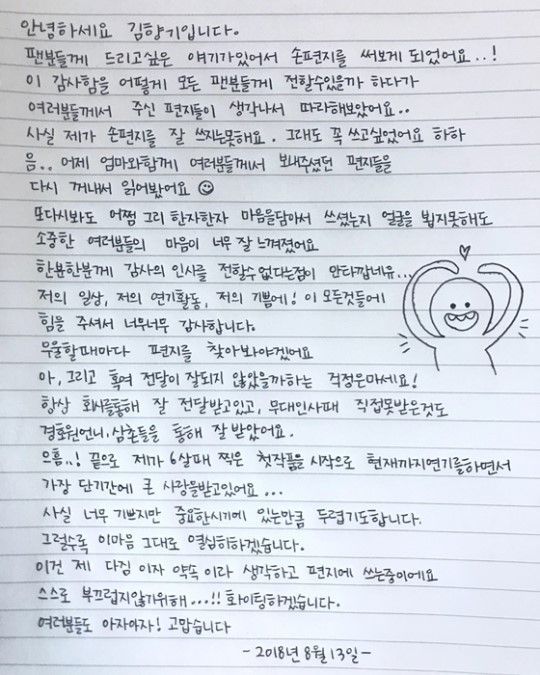 안녕하세요 김향기입니다.
팬분들께 드리고싶은 얘기가있어서 손편지를 써보게 되었어요..!
이 감사함을 어떻게 모든 팬분들께 전할수있을까 하다가
여러분들께서 주신 편지들이 생각나서 따라해보았어요..
사실 제가 손편지를 잘 쓰지는못해요. 그래도 꼭 쓰고싶었어요 하하
음.. 어제 엄마와함께 여러분들께서 보내주셨던 편지들을
다시 꺼내서 읽어봤어요 ☺
또다시봐도 어쩜 그리 한자한자 마음을담아서 쓰셨는지 얼굴을 뵙지못해도
소중한 여러분들의 마음이 너무 잘 느껴졌어요
한분한분께 감사의 인사를 전할수 없다는점이 안타깝네유...
저의 일상, 저의 연기활동, 저의 기쁨에! 이 모든것들에
힘을 주셔서 너무너무 감사합니다.
우울할때마다 편지를 찾아봐야겠어요
아, 그리고 혹여 전달이 잘되지 않았을까하는 걱정은마세요!
항상 회사를통해 잘 전달받고있고, 무대인사때 직접못받은것도
경호원언니,삼촌들을 통해 잘 받았어요.
으흠..! 끝으로 제가 6살때 찍은 첫작품을 시작으로 현재까지연기를하면서
가장 단기간에 큰 사랑을받고있어요...
사실 너무 기쁘지만 중요한시기에 있는만큼 두렵기도합니다.
그럴수록 이마음 그대로 열심히하겠습니다.
이건 제 다짐 이자 약속 이라 생각하고 편지에 쓰는중이에요
스스로 부끄럽지않기위해...!! 화이팅하겠습니다.
여러분들도 아자아자! 고맙습니다
-2018년 8월 13일-